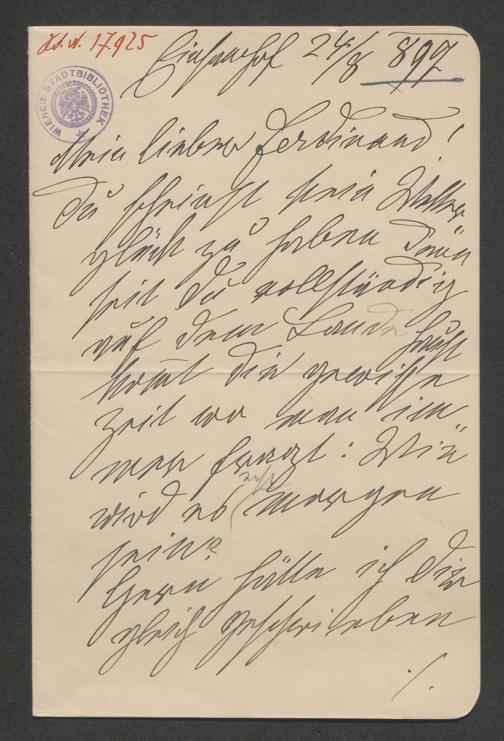 J.N. 17925
WIENER STADTBIBLIOTHEK
24/8 897
Mein lieber Ferdinand!
Du scheinst kein Wetter
glück zu haben denn
seit Du vollständig
auf dem Lande
kommt die gewisse
Zeit wo man im
mer fragt: Wie
wird es morgen
sein?
Gern hätte ich Dir
gleich geschrieben
./.